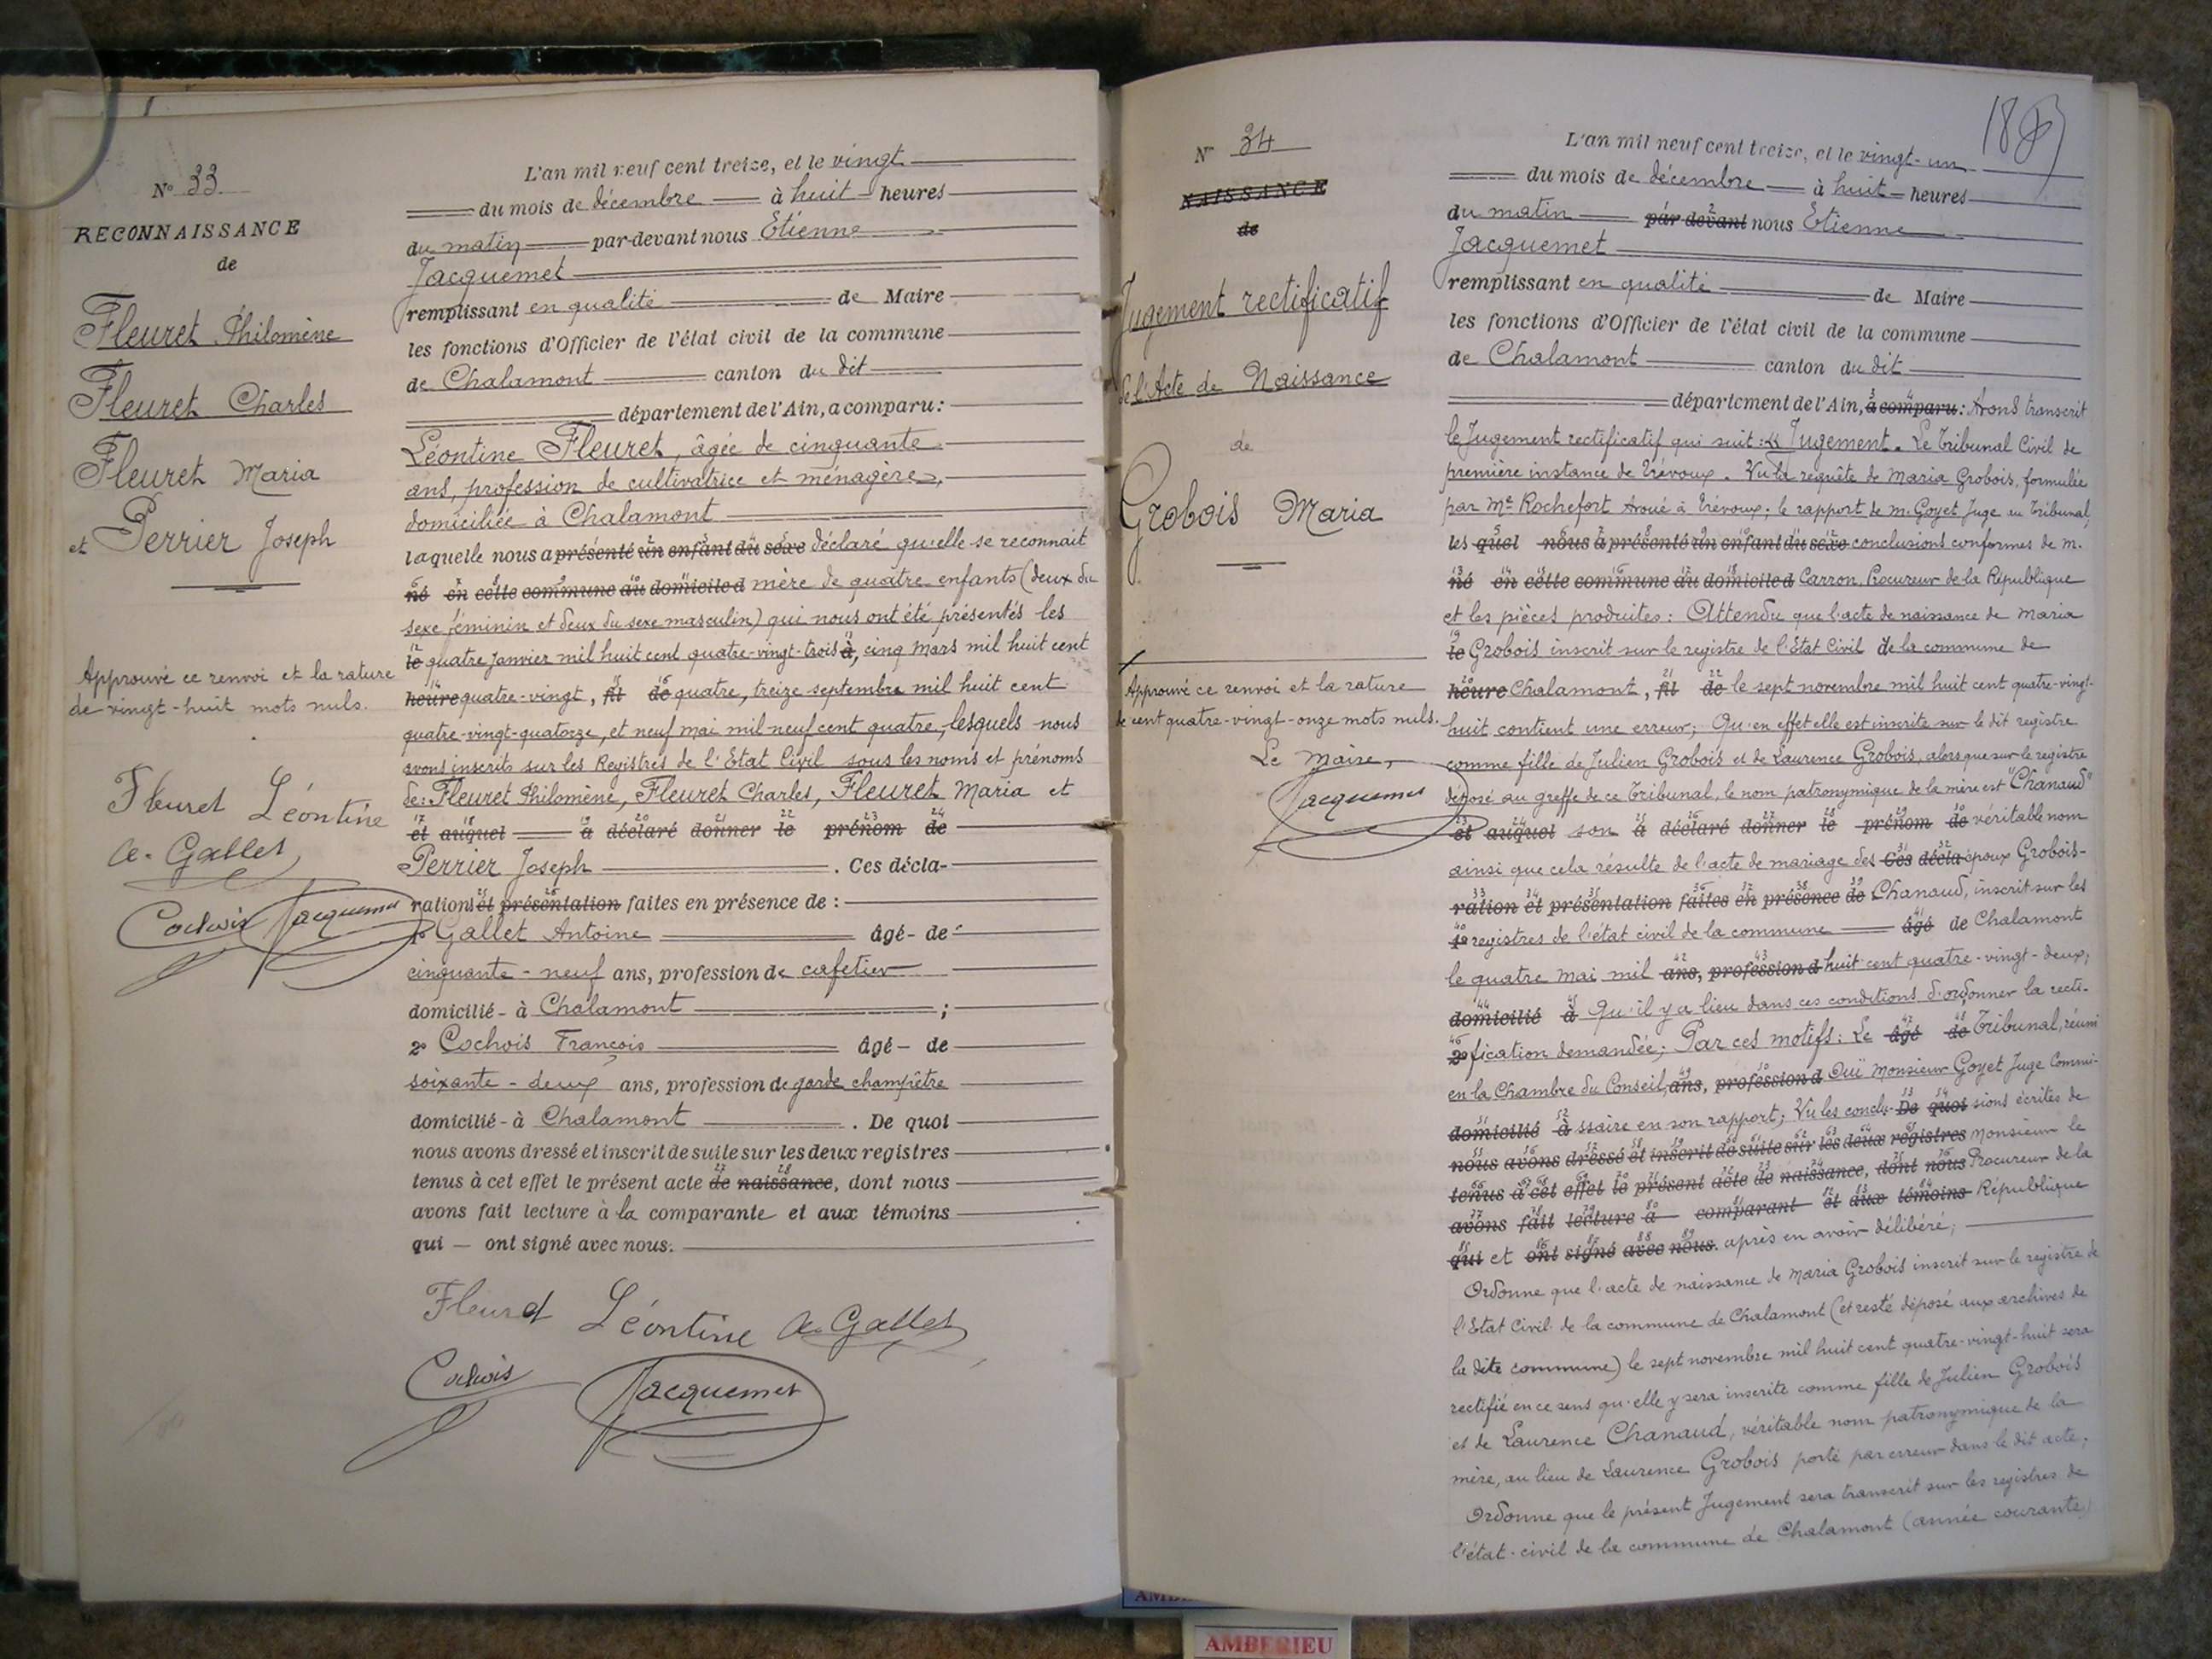 N° 33
RECONNAISSANCE
de
Fleuret Philomène
Fleuret Charles
Fleuret Maria
et Perrier Joseph
Approuvé ce renvoi et la rature
de vingt-huit mots nuls.
Fleuret Léontine
A. Gallet
Cochois Jacquemet
L'an mil neuf cent treize, et le vingt
du mois de décembre à huit heures
du matin par-devant nous Etienne
Jacquemet
remplissant en qualité de Maire
les fonctions d'Officier de l'état civil de la commune
de Chalamont canton du dit
département de l'Ain, a comparu:
Léontine Fleuret, âgée de cinquante
ans, profession de cultivatrice et ménagère,
domiciliée à Chalamont
laquelle nous a présenté un enfant du sexe déclaré qu'elle se reconnait
né en cette commune au domicile d mère de quatre enfants (deux du
sexe féminin et deux du sexe masculin) qui nous ont été présentés les
le quatre Janvier mil huit cent quatre-vingt-trois à, cinq Mars mil huit cent
heure quatre-vingt, fil de quatre, treize septembre mil huit cent
quatre-vingt-quatorze, et neuf mai mil-neuf cent quatre, lesquels nous
avons inscrits sur les Registres de l'Etat Civil sous les noms et prénoms
de: Fleuret Philomène, Fleuret Charles, Fleuret Maria et
et auquel a déclaré donner le prénom de
Perrier Joseph. Ces décla-
rations et présentation faites en présence de :
1° Gallet Antoine âgé - de
cinquante - neuf ans, profession de cafetier
domicilié - à Chalamont ;
2° Cochois François âgé - de
soixante - deux ans, profession de garde champêtre
domicilié - à Chalamont. De quoi
nous avons dressé et inscrit de suite sur les deux registres
tenus à cet effet le présent acte de naissance, dont nous
avons fait lecture à la comparante et aux témoins
qui — ont signé avec nous.
Fleuret Léontine A. Gallet
Cochois Jacquemet
N° 34
NAISSANCE
de
Jugement rectificatif
de l'Acte de Naissance
de
Grobois Maria
Approuvé ce renvoi et la rature
de cent quatre-vingt-onze mots nuls.
Le Maire,
Jacquemet
L'an mil neuf cent treize, et le vingt-un
du mois de décembre à huit heures
du matin par devant nous Etienne
Jacquemet
remplissant en qualité de Maire
les fonctions d'Officier de l'état civil de la commune
de Chalamont canton du dit
département de l'Ain, a comparu: Avons transcrit
le Jugement rectificatif qui suit : « Jugement. Le Tribunal Civil de
première instance de Trévoux. Vu la requête de Maria Grobois, formulée
par Me Rochefort Avoué à Trévoux; le rapport de M. Goyet Juge au Tribunal,
les quel nous a présenté un enfant du sexe conclusions conformes de M.
né en cette commune au domicile d Carron, Procureur de la République
et les pièces produites: Attendu que l'acte de naissance de Maria
le Grobois inscrit sur le registre de l'Etat Civil de la commune de
heure Chalamont, fil de le sept novembre mil huit cent quatre-vingt-
huit contient une erreur; Qu'en effet elle est inscrite sur le dit registre
comme fille de Julien Grobois et de Laurence Grobois, alors que sur le registre
déposé au greffe de ce Tribunal, le nom patronymique de la mère est "Chanaud"
et auquel son a déclaré donner le prénom de véritable nom
ainsi que cela résulte de l'acte de mariage des Ces décla époux Grobois-
ration et présentation faites en présence de Chanaud, inscrit sur les
1° registres de l'état civil de la commune âgé de Chalamont
le quatre Mai mil ans, profession d huit cent quatre-vingt-deux;
domicilié à Qu'il y a lieu dans ces conditions d'ordonner la recti-
2° fication demandée; Par ces motifs: Le âgé de Tribunal, réuni
en la Chambre du Conseil, ans, profession d Ouï Monsieur Goyet Juge Commi-
domicilié à ssaire en son rapport; Vu les conclu- De quoi sions écrites de
nous avons dressé et inscrit de suite sur les deux registres Monsieur le
tenus à cet effet le présent acte de naissance, dont nous Procureur de la
avons fait lecture à comparant et aux témoins République
qui et ont signé avec nous. après en avoir délibéré;
Ordonne que l'acte de naissance de Maria Grobois inscrit sur le registre de
l'Etat Civil de la commune de Chalamont (et resté déposé aux archives de
la dite commune) le sept novembre mil huit cent quatre-vingt-huit sera
rectifié en ce sens qu'elle y sera inscrite comme fille de Julien Grobois
et de Laurence Chanaud, véritable nom patronymique de la
mère, au lieu de Laurence Grobois porté par erreur dans le dit acte;
Ordonne que le présent Jugement sera transcrit sur les registres de
l'état-civil de la commune de Chalamont (année courante)
AMBERIEU